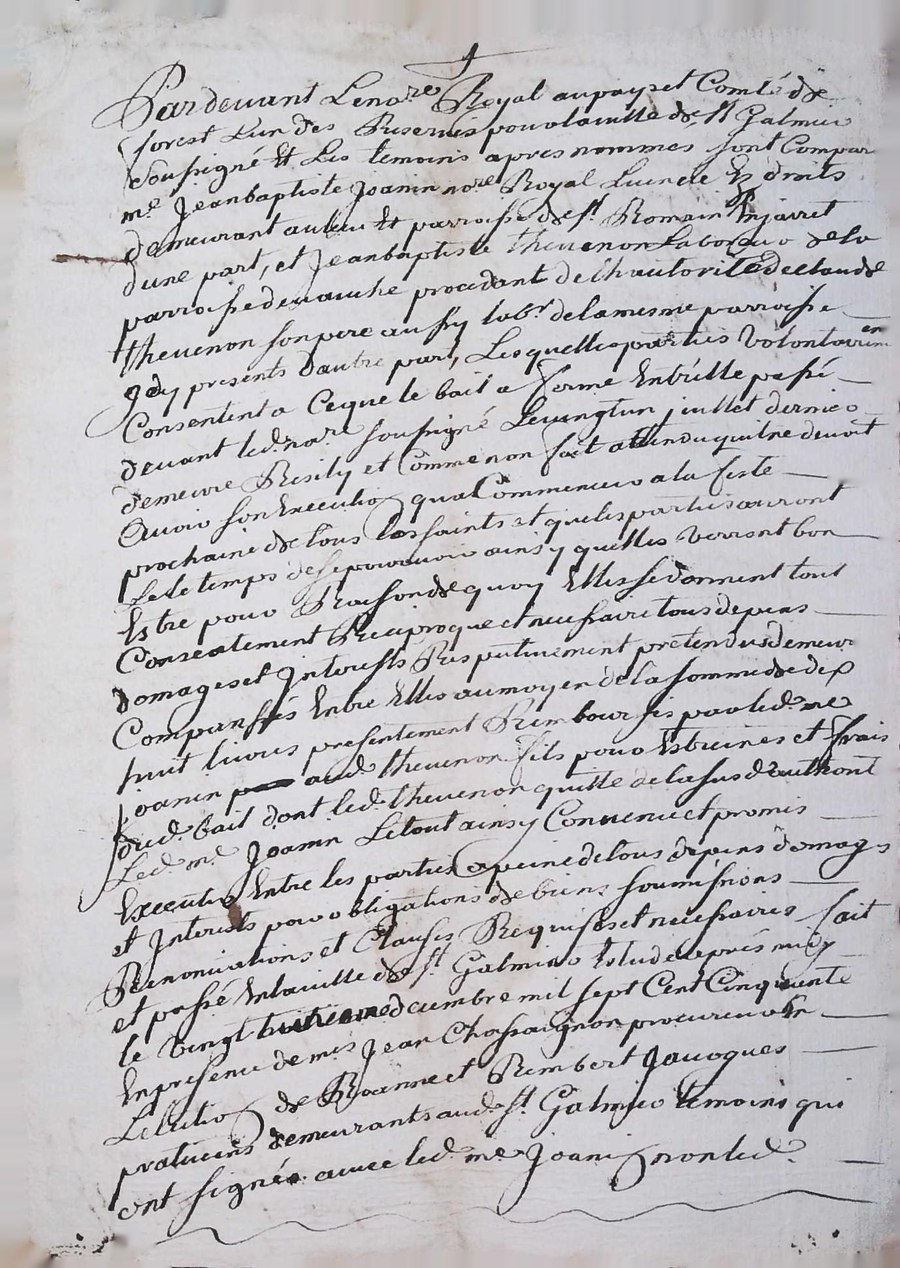 Pardevant Le no.re Royal au pays et Comté de
forest L'un des Reservés pour la ville de S.t Galmier
Soussigné Et Les temoins apres nommes sont Compar
m.e Jean baptiste Joanin no.re Royal Licencié Es droits
demeurant au lieu Et parroisse de S.t Romain En jarret
d'une part, et Jean baptiste thevenon Laboureur de la
parroisse de procedant de L'hautorité de claude
thevenon son pere aussy lab.r de la mesme parroisse
Icy presents d'autre part, Les quelles parties volontairem.en
Consentent a Ceque le bail a ferme Entr'elle passé
devant led. no.re soussigné Le vingt un juillet dernier
demeure Resily et Comme non fait attendu qu'il ne devoit
Avoir son Execution qu'al Commencer a la feste
prochaine de tous les saints et que les parties auront
Le temps de se pourvoir ainsy qu'elles verront bon
Estre pour Raison de quoy Elles se donnent tout
Consentement Reciproque et necessaire tous depens
domages et Interests Respectivement pretendus demeur
Compansés Entre Elles au moyen de la somme de dix
huit livres presentement Rembourses par led. me
Joanin aud. thevenon fils pour Estreines et frais
dud. bail dont led. thevenon quitte de
Led. m.e Joanin Le tout ainsy Convenu et promis
Executer Entre les parties a peine de tous depens domages
et Interests par obligations de biens soumissions
Renonciations et Clauses Requises et necessaires fait
et passé En la ville de S.t Galmier Etude après midy
le vingt huitieme decembre mil sept Cent Cinquante
En presence de mes Jean Chassaignon procureur En
L'election de Roanne et Rembert Jacoques
praticiens demeurants aud. S.t Galmier temoins qui
ont signés avec led. m.e Joanin non led.